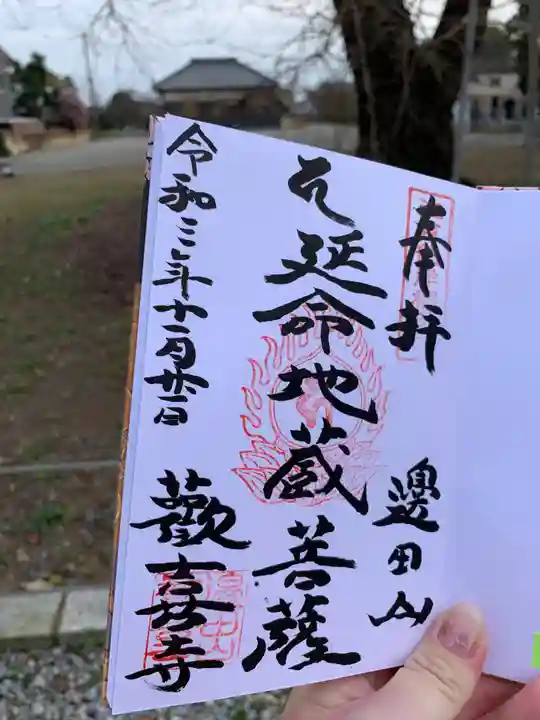 奉拝
邊田山
延命地蔵菩薩
令和三年十一月廿一日
歡喜寺